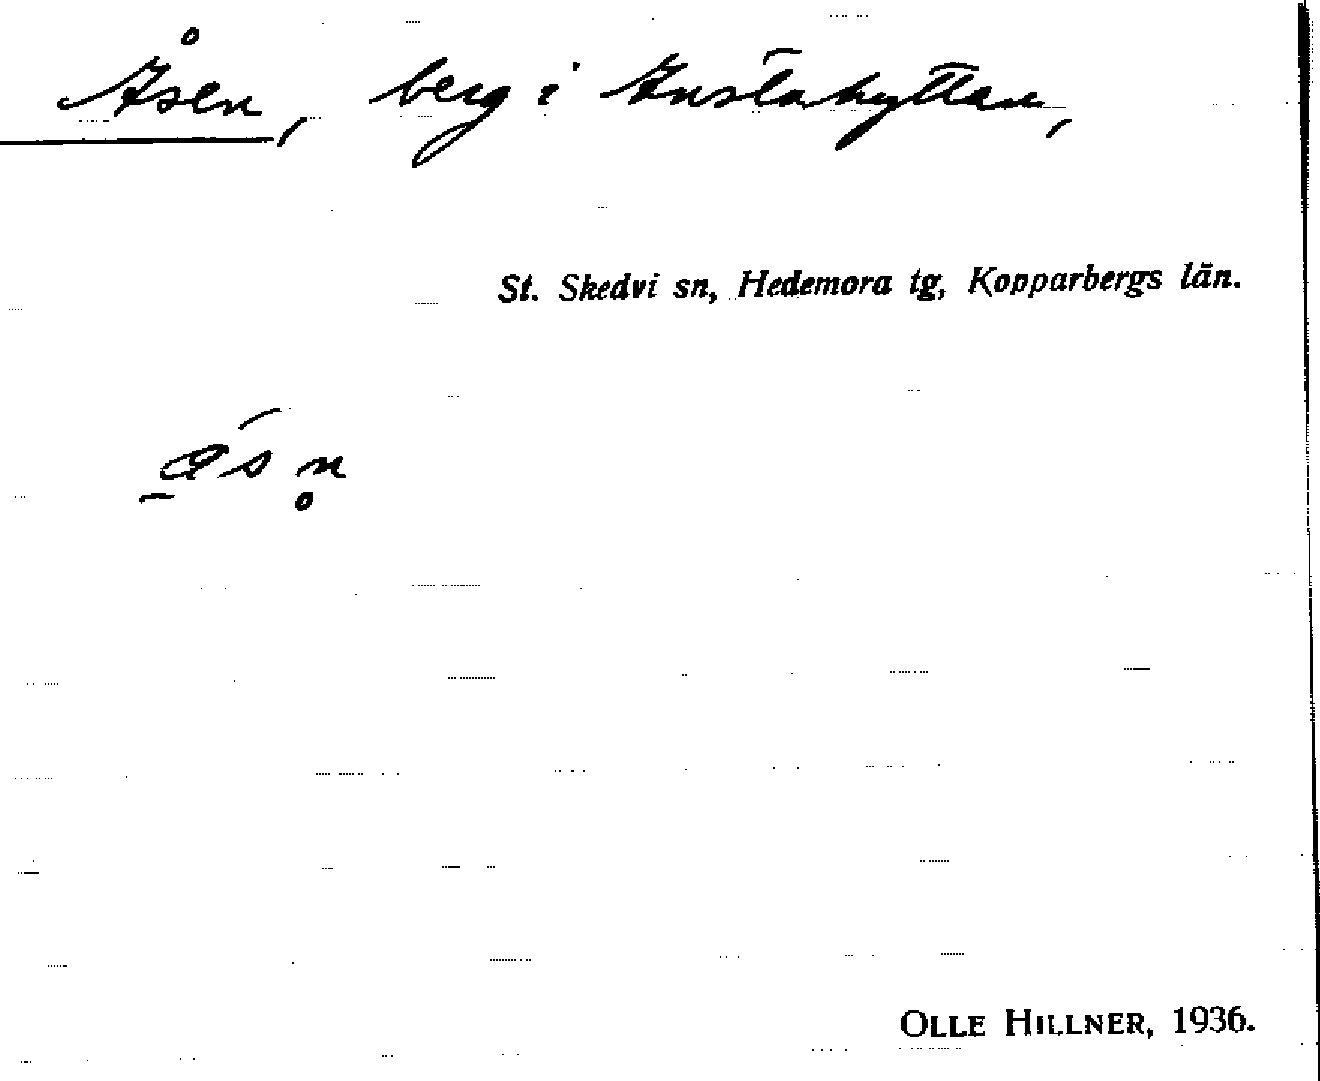 Åsen, berg i Anstahyttan,
St. Skedvi sn, Hedemora tg, Kopparbergs län.
ås n̥
OLLE HILLNER, 1936.